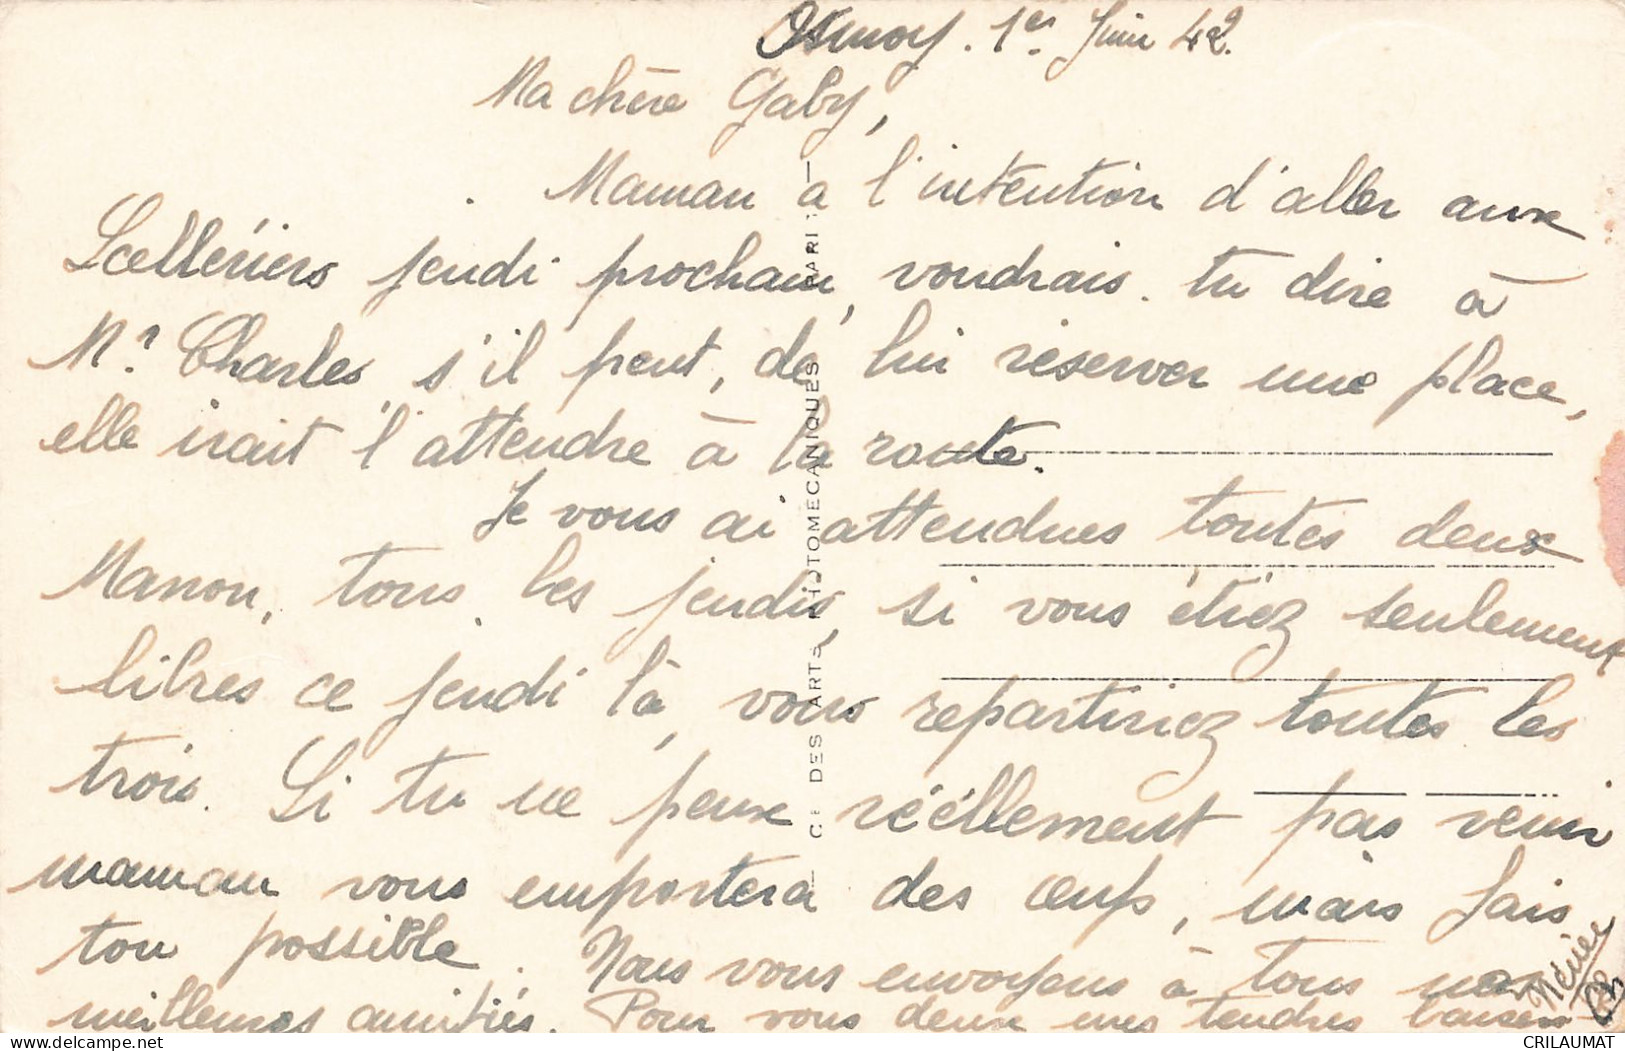 Osmoy. 1er Juin 42.
Ma chère Gaby,
Maman a l'intention d'aller aux
Scellériers jeudi prochain, voudrais tu dire à
Mr Charles, s'il peut, de lui réserver une place,
elle irait l'attendre à la route.
Je vous ai attendues toutes deux
Manon, tous les jeudis, si vous étiez seulement
libres ce jeudi là, vous repartiriez toutes les
trois. Si tu ne peux réellement pas venir
maman vous emportera des œufs, mais fais
ton possible. Nous vous envoyons à tous nos
meilleures amitiés. Pour vous deux mes tendres baisers
CIE DES ARTS PHOTOMECANIQUES - PARIS
CRILAUMAT